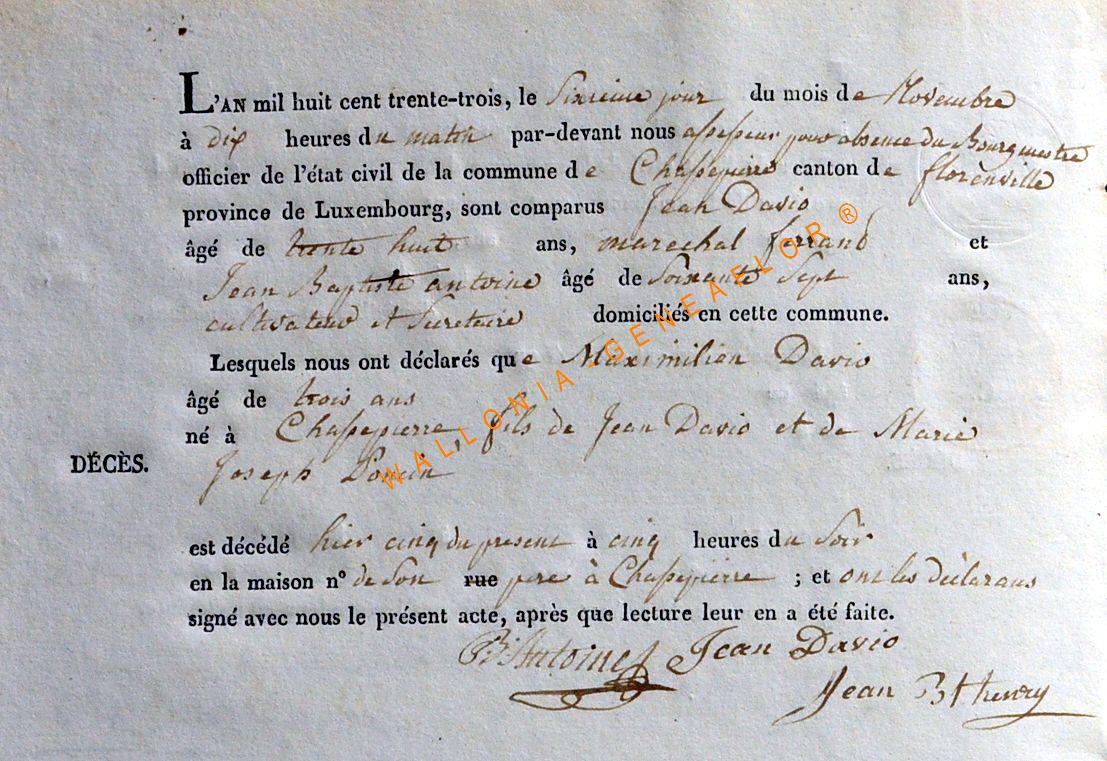 L'AN mil huit cent trente-trois, le Sixieme jour du mois de Novembre
à dix heures du matin par-devant nous assesseur pour absence du Bourguestre
officier de l'état civil de la commune de Chassepierre canton de florènville
province de Luxembourg, sont comparus Jean David
âgé de trente huit ans, marechal ferrand et
Jean Baptiste antoine âgé de Soixante Sept ans,
cultivateur et Secretaire domiciliés en cette commune.
Lesquels nous ont déclarés que Maximilien David
âgé de trois ans
né à Chassepierre, fils de Jean David et de Marie
DÉCÈS.
Joseph Poncin
est décédé hier cinq du present à cinq heures du Soir
en la maison nº de Son rue pere à Chassepierre ; et ont les déclarans
signé avec nous le présent acte, après que lecture leur en a été faite.
Bt Antoine Jean David
Jean Bt henry
WALLONIA GENEAELOR ®